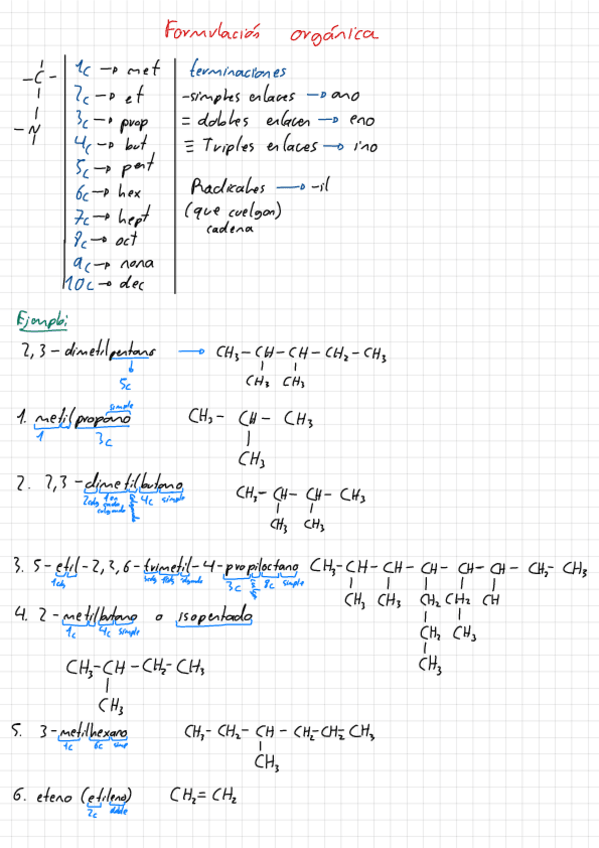 Formulación orgánica
-C-
-N
1c → met
2c → et
3c → prop
4c → but
5c → pent
6c → hex
7c → hept
8c → oct
9c → nona
10c → dec
terminaciones
-simples enlaces → ano
= dobles enlaces → eno
≡ Triples enlaces → ino
Radicales → -il
(que cuelgan)
cadena
Ejemplo:
2,3-dimetilpentano → CH₃-CH-CH-CH₂-CH₃
CH₃ CH₃
5c
simple
1. metilpropano CH₃- CH - CH₃
1 3c
CH₃
2. 2,3-dimetilbutano CH₃- CH- CH-CH₃
4c simple
CH₃ CH₃
3. 5-etil-2,3,6-trimetil-4-propiloctano CH₃-CH-CH-CH-CH-CH-CH₂-CH₃
3c 8c simple
CH₃ CH₃ CH₂ CH₂ CH
CH₂ CH₃
CH₃
4. 2-metilbutano o isopentado
1c 4c simple
CH₃-CH-CH₂-CH₃
CH₃
5. 3-metilhexano CH₃-CH₂-CH-CH₂-CH₂CH₃
1c 6c simp
CH₃
6. eteno (etileno) CH₂=CH₂
2c doble